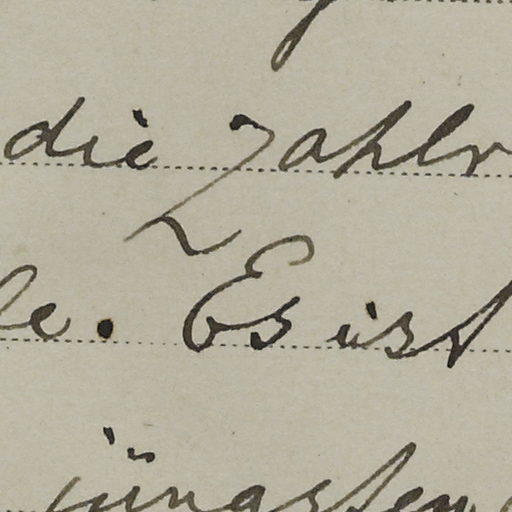 die Zahlr
le. Es ist
jüngsten